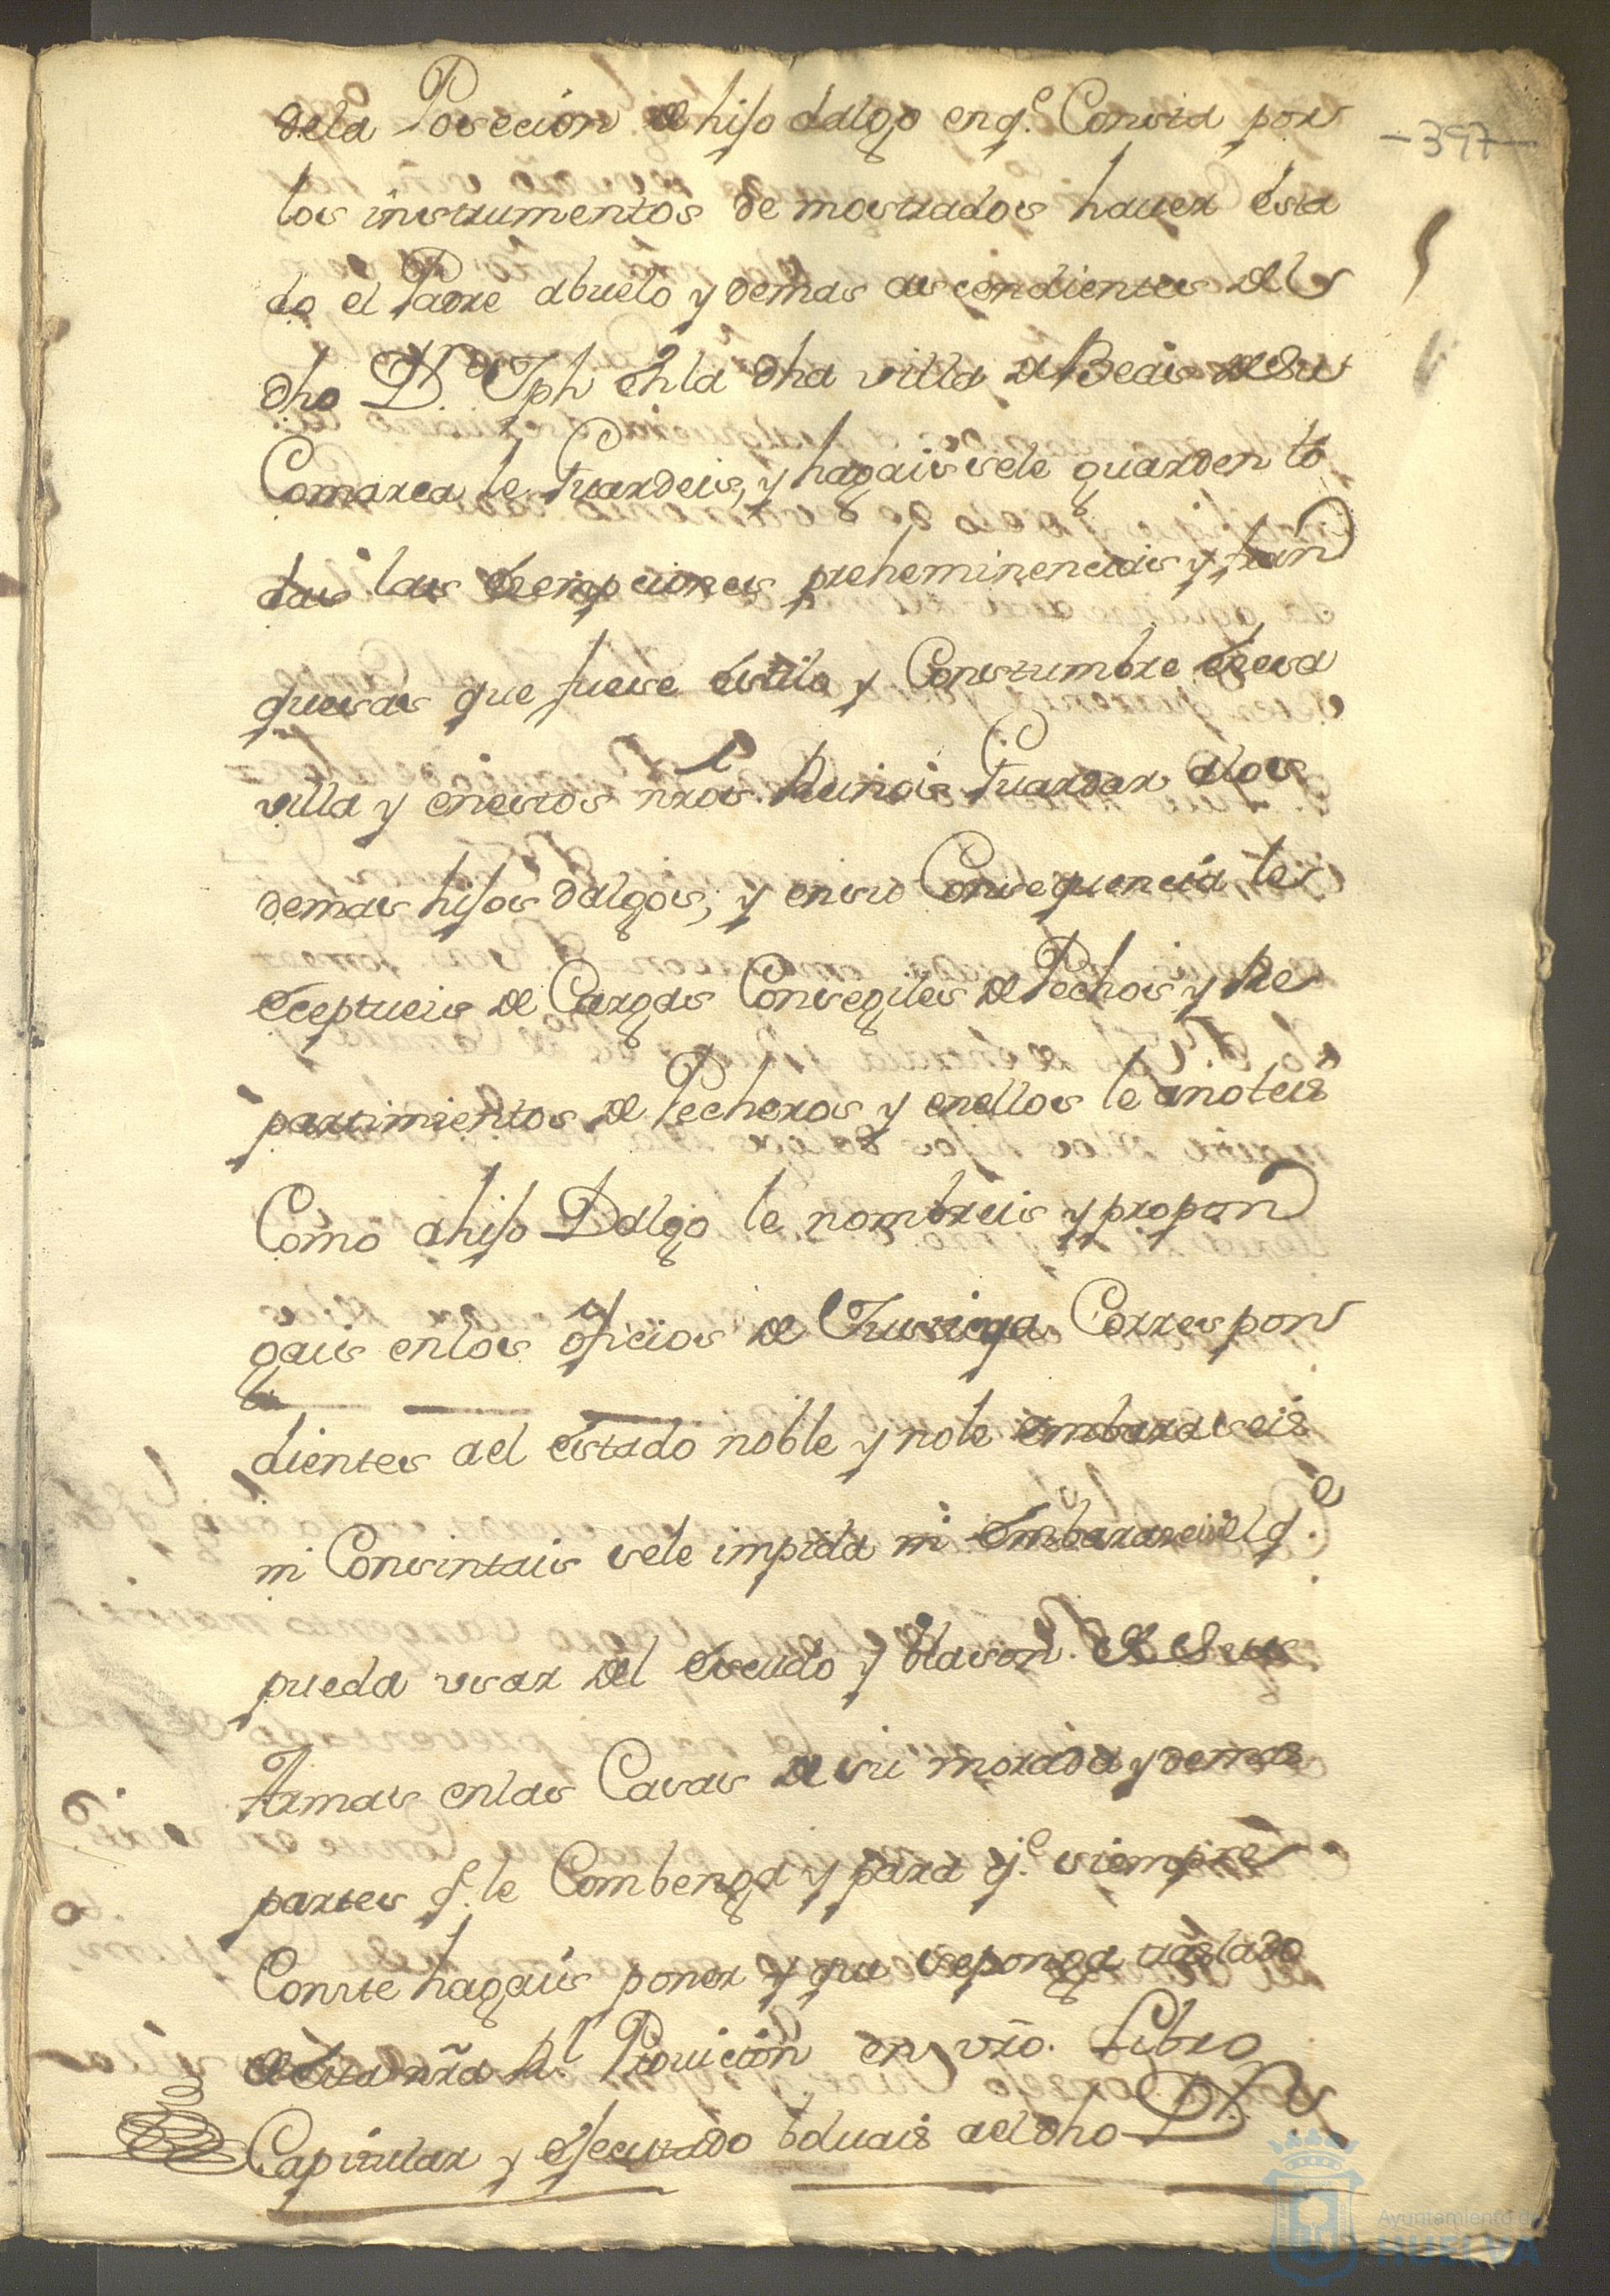 dela Posecion de hijo dalgo enq.e Consta por
-397-
los instrumentos demostrados hauer esta
do el Padre abuelo y demas ascendientes del
dho D.n Jph en la dha villa de Beas de su
Comarca le Guardeis, y hagais sele guarden to
das las Esempciones preheminencias y fran
quesas que fuese estilo y Constumbre en esa
villa y enestos nros. Reinos Guardar alos
demas hijos dalgos; y ensu Consequencia le
eceptueis de Cargas Consegiles de Pechos y Re
partimientos de Pecheros y enellos le anoteis
Como ahijo Dalgo le nombreis y propon
gais enlos oficios de Justicia Correspon
dientes ael estado noble y nole embaraseis
ni Consintais sele impida ni embarase el q.e
pueda usar del escudo y blason de Seus
Armas enlas Casas de su morada y demas
partes q.e le Combenga y para q.e siempre
Conste hagais poner y que seponga traslado
de esta nra R.l Prouicion en vro. Libro
Capitular y esecutado bduais aeldho D.n
Ayuntamiento de
HUELVA